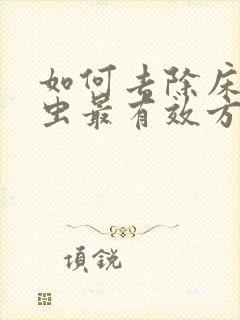 如何去除床
虫最有效方
項銳